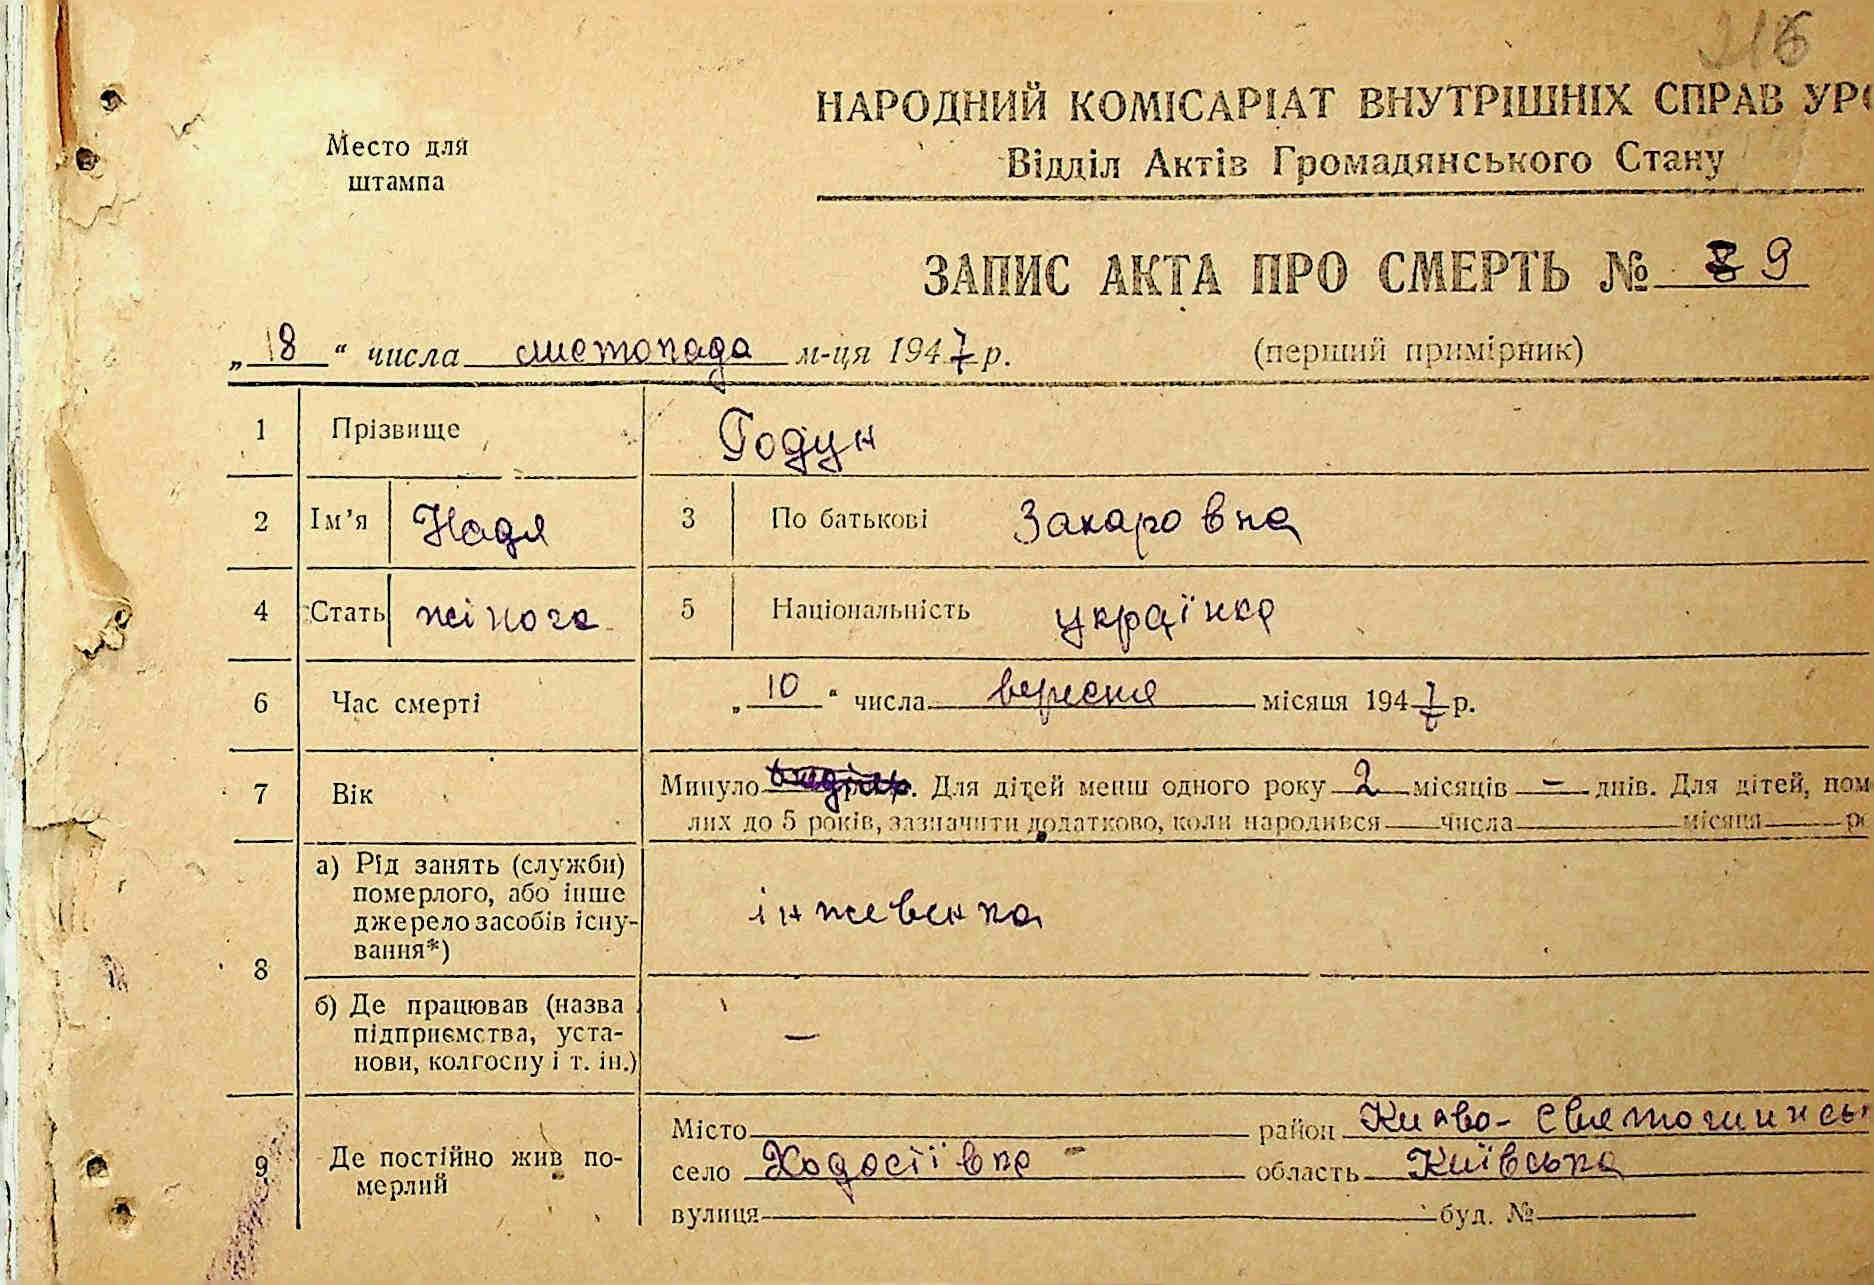 216
НАРОДНИЙ КОМІСАРІАТ ВНУТРІШНІХ СПРАВ УРС
Место для
штампа
Відділ Актів Громадянського Стану
ЗАПИС АКТА ПРО СМЕРТЬ № 89
„18“ числа листопада м-ця 1947 р. (перший примірник)
1 Прізвище Годун
2 Ім’я Надя 3 По батькові Захаровна
4 Стать жіноча 5 Національність українка
6 Час смерті „10“ числа вересня місяця 1947 р.
7 Вік Минуло . Для дітей менш одного року 2 місяців – днів. Для дітей, пом
лих до 5 років, зазначити додатково, коли народився числа місяця ро
8 а) Рід занять (служби)
померлого, або інше
джерело засобів існу-
вання*) інжевенка
б) Де працював (назва
підприємства, уста-
нови, колгоспу і т. ін.) –
9 Де постійно жив по-
мерлий
Місто район Києво-Святошинсь
село Ходосіївка – область Київська
вулиця буд. №